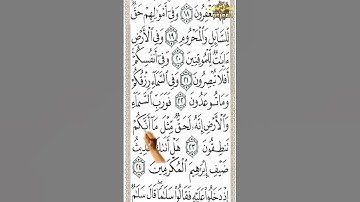 يَسْتَغْفِرُونَ ١٨ وَفِىٓ أَمْوَٰلِهِمْ حَقٌّ
لِّلسَّآئِلِ وَٱلْمَحْرُومِ ١٩ وَفِى ٱلْأَرْضِ
ءَايَٰتٌ لِّلْمُوقِنِينَ ٢٠ وَفِىٓ أَنفُسِكُمْ
أَفَلَا تُبْصِرُونَ ٢١ وَفِى ٱلسَّمَآءِ رِزْقُكُمْ
وَمَا تُوعَدُونَ ٢٢ فَوَرَبِّ ٱلسَّمَآءِ
وَٱلْأَرْضِ إِنَّهُۥ لَحَقٌّ مِّثْلَ مَآ أَنَّكُمْ
تَنطِقُونَ ٢٣ هَلْ أَتَىٰكَ حَدِيثُ
ضَيْفِ إِبْرَٰهِيمَ ٱلْمُكْرَمِينَ ٢٤
إِذْ دَخَلُوا۟ عَلَيْهِ فَقَالُوا۟ سَلَٰمًا قَالَ سَلَٰمٌ